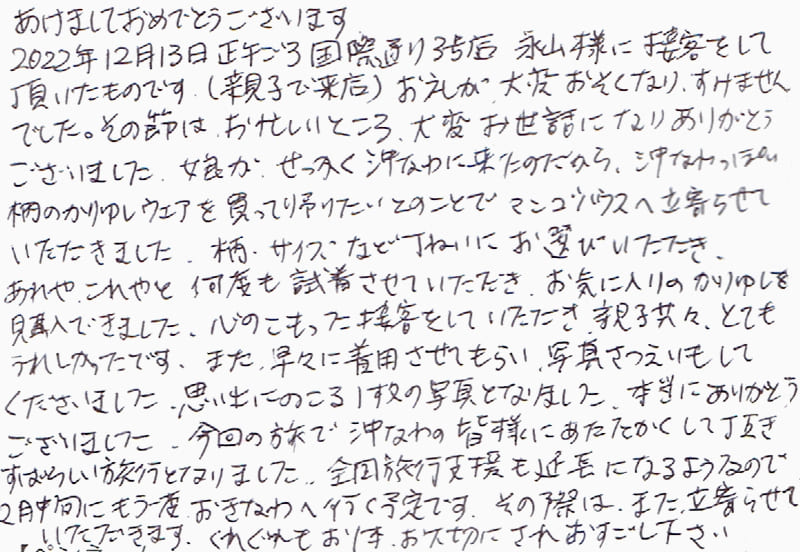 あけましておめでとうございます
2022年12月13日正午ごろ国際通り3号店 永山様に接客をして
頂いたものです.(親子で来店) お礼が、大変おそくなり、すみません
でした。その節は、お忙しいところ、大変お世話になりありがとう
ございました. 娘が、せっかく沖なわに来たのだから、沖なわっぽい
柄のかりゆしウェアを買って帰りたいとのことでマンゴハウスへ立寄らせて
いただきました. 柄・サイズなど丁ねいにお選びいただき、
あれや、これやと何度も試着させていただき、お気に入りのかりゆしを
購入できました. 心のこもった接客をしていただき、親子共々、とても
うれしかったです. また、早々に着用させてもらい、写真さつえいもして
くださいました. 思い出にのこる1枚の写真となりました. 本当にありがとう
ございました. 今回の旅で沖なわの皆様にあたたかくして頂き
すばらしい旅行となりました. 全国旅行支援も延長になるようなので
2月中旬にもう一度、おきなわへ行く予定です. その際は、また、立寄らせて
いただきます. くれぐれもお体、お大切にされおすごし下さい